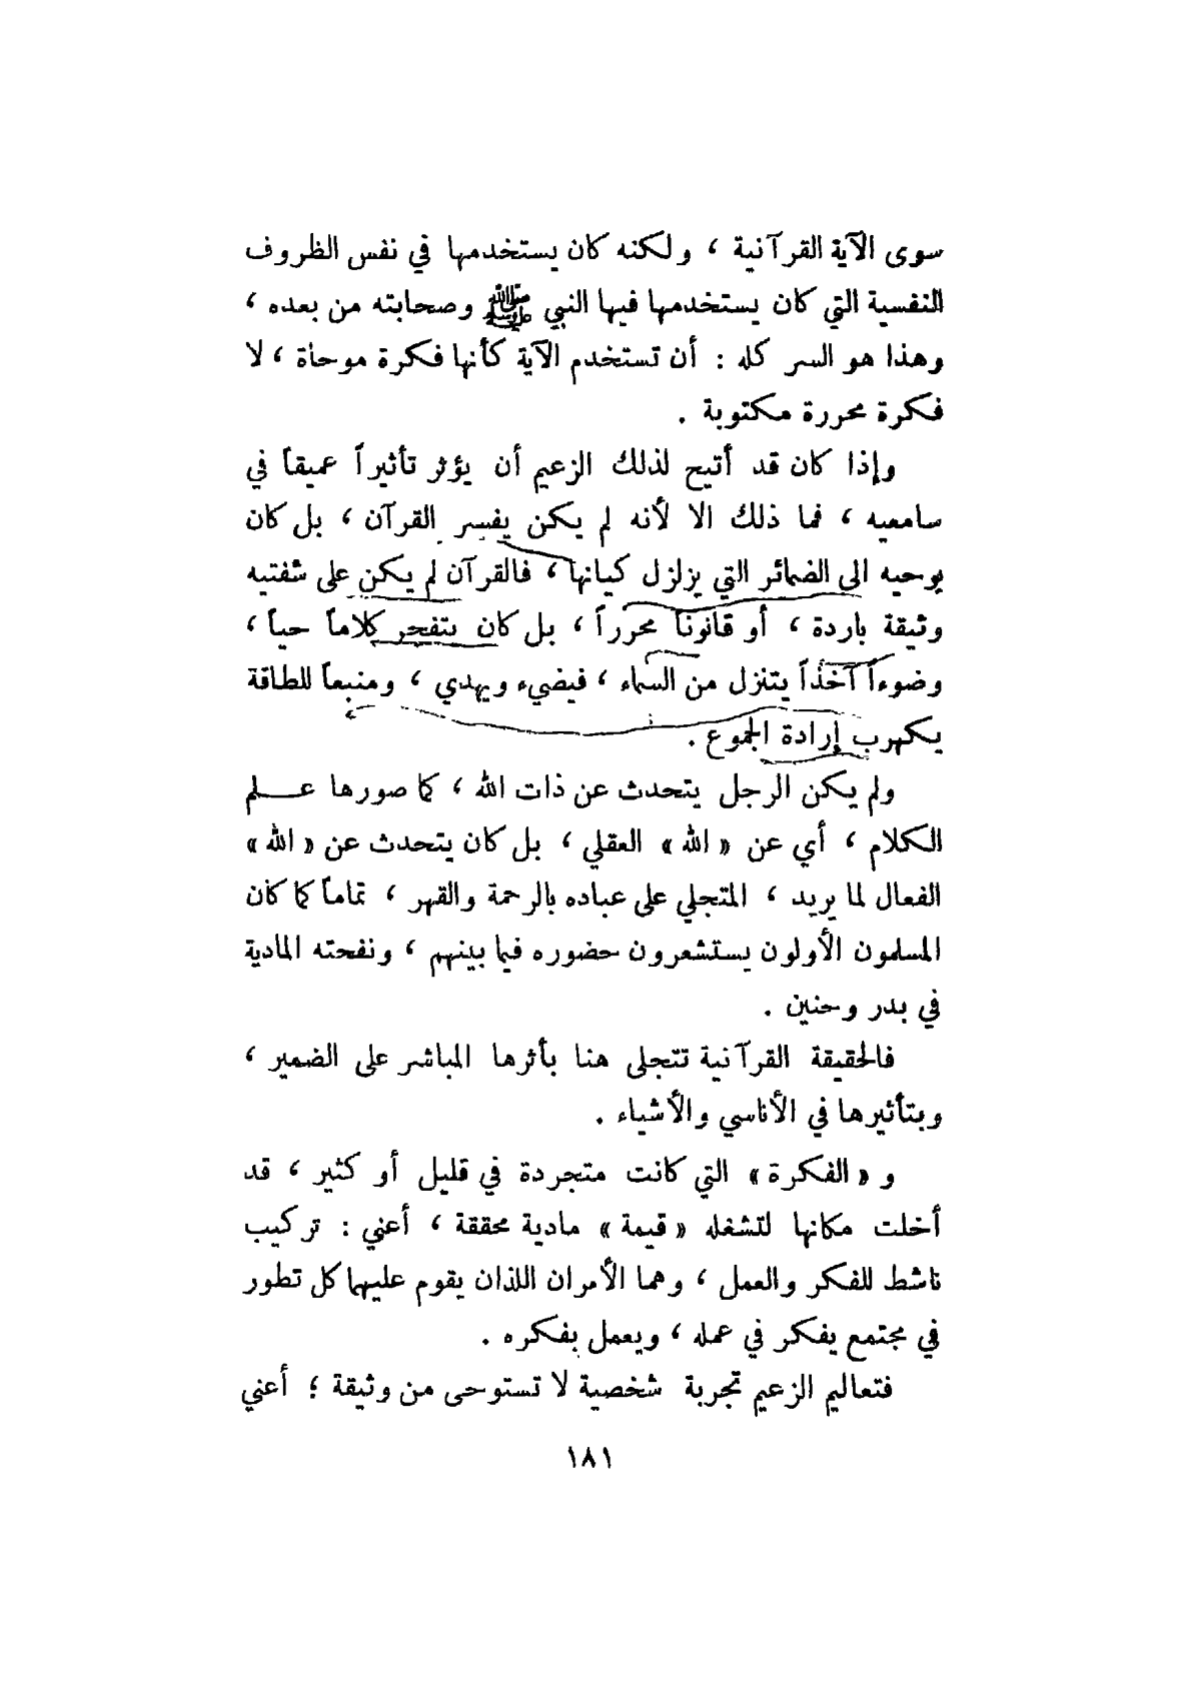 سوى الآية القرآنية ، ولكنه كان يستخدمها في نفس الظروف
النفسية التي كان يستخدمها فيها النبي ﷺ وصحابته من بعده ،
وهذا هو السر كله : أن تستخدم الآية كأنها فكرة موحاة ، لا
فكرة محررة مكتوبة .
وإذا كان قد أتيح لذلك الزعيم أن يؤثر تأثيراً عميقاً في
سامعيه ، فما ذلك الا لأنه لم يكن يفسر القرآن ، بل كان
يوحيه الى الضمائر التي يزلزل كيانها ، فالقرآن لم يكن على شفتيه
وثيقة باردة ، أو قانوناً محرراً ، بل كان يتفجر كلاماً حياً ،
وضوءاً آخذاً يتنزل من السماء ، فيضيء ويهدي ، ومنبعاً للطاقة
يكهرب إرادة الجموع .
ولم يكن الرجل يتحدث عن ذات الله ، كما صورها عـــلم
الكلام ، أي عن « الله » العقلي ، بل كان يتحدث عن « الله »
الفعال لما يريد ، المتجلي على عباده بالرحمة والقهر ، تماماً كما كان
المسلمون الأولون يستشعرون حضوره فيما بينهم ، ونفحته المادية
في بدر وحنين .
فالحقيقة القرآنية تتجلى هنا بأثرها المباشر على الضمير ،
وبتأثيرها في الأناسي والأشياء .
و « الفكرة » التي كانت متجردة في قليل أو كثير ، قد
أخلت مكانها لتشغله « قيمة » مادية محققة ، أعني : تركيب
ناشط للفكر والعمل ، وهما الأمران اللذان يقوم عليهما كل تطور
في مجتمع يفكر في عمله ، ويعمل بفكره .
فتعاليم الزعيم تجربة شخصية لا تستوحى من وثيقة ؛ أعني
١٨١